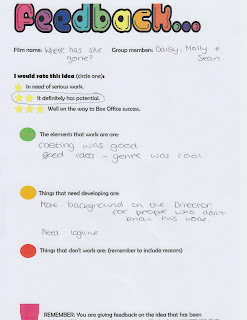 Feedback...
Film name: Where has she gone?
Group members: Daisy, Molly + Sean
I would rate this idea (circle one):
In need of serious work.
It definitely has potential.
Well on the way to Box Office success.
The elements that work are:
casting was good
good idea - genre was cool
Things that need developing are:
More background on the Director
for people who don't
know his work.
Need logline.
Things that don't work are: (remember to include reasons)
REMEMBER: You are giving feedback on the idea that has been